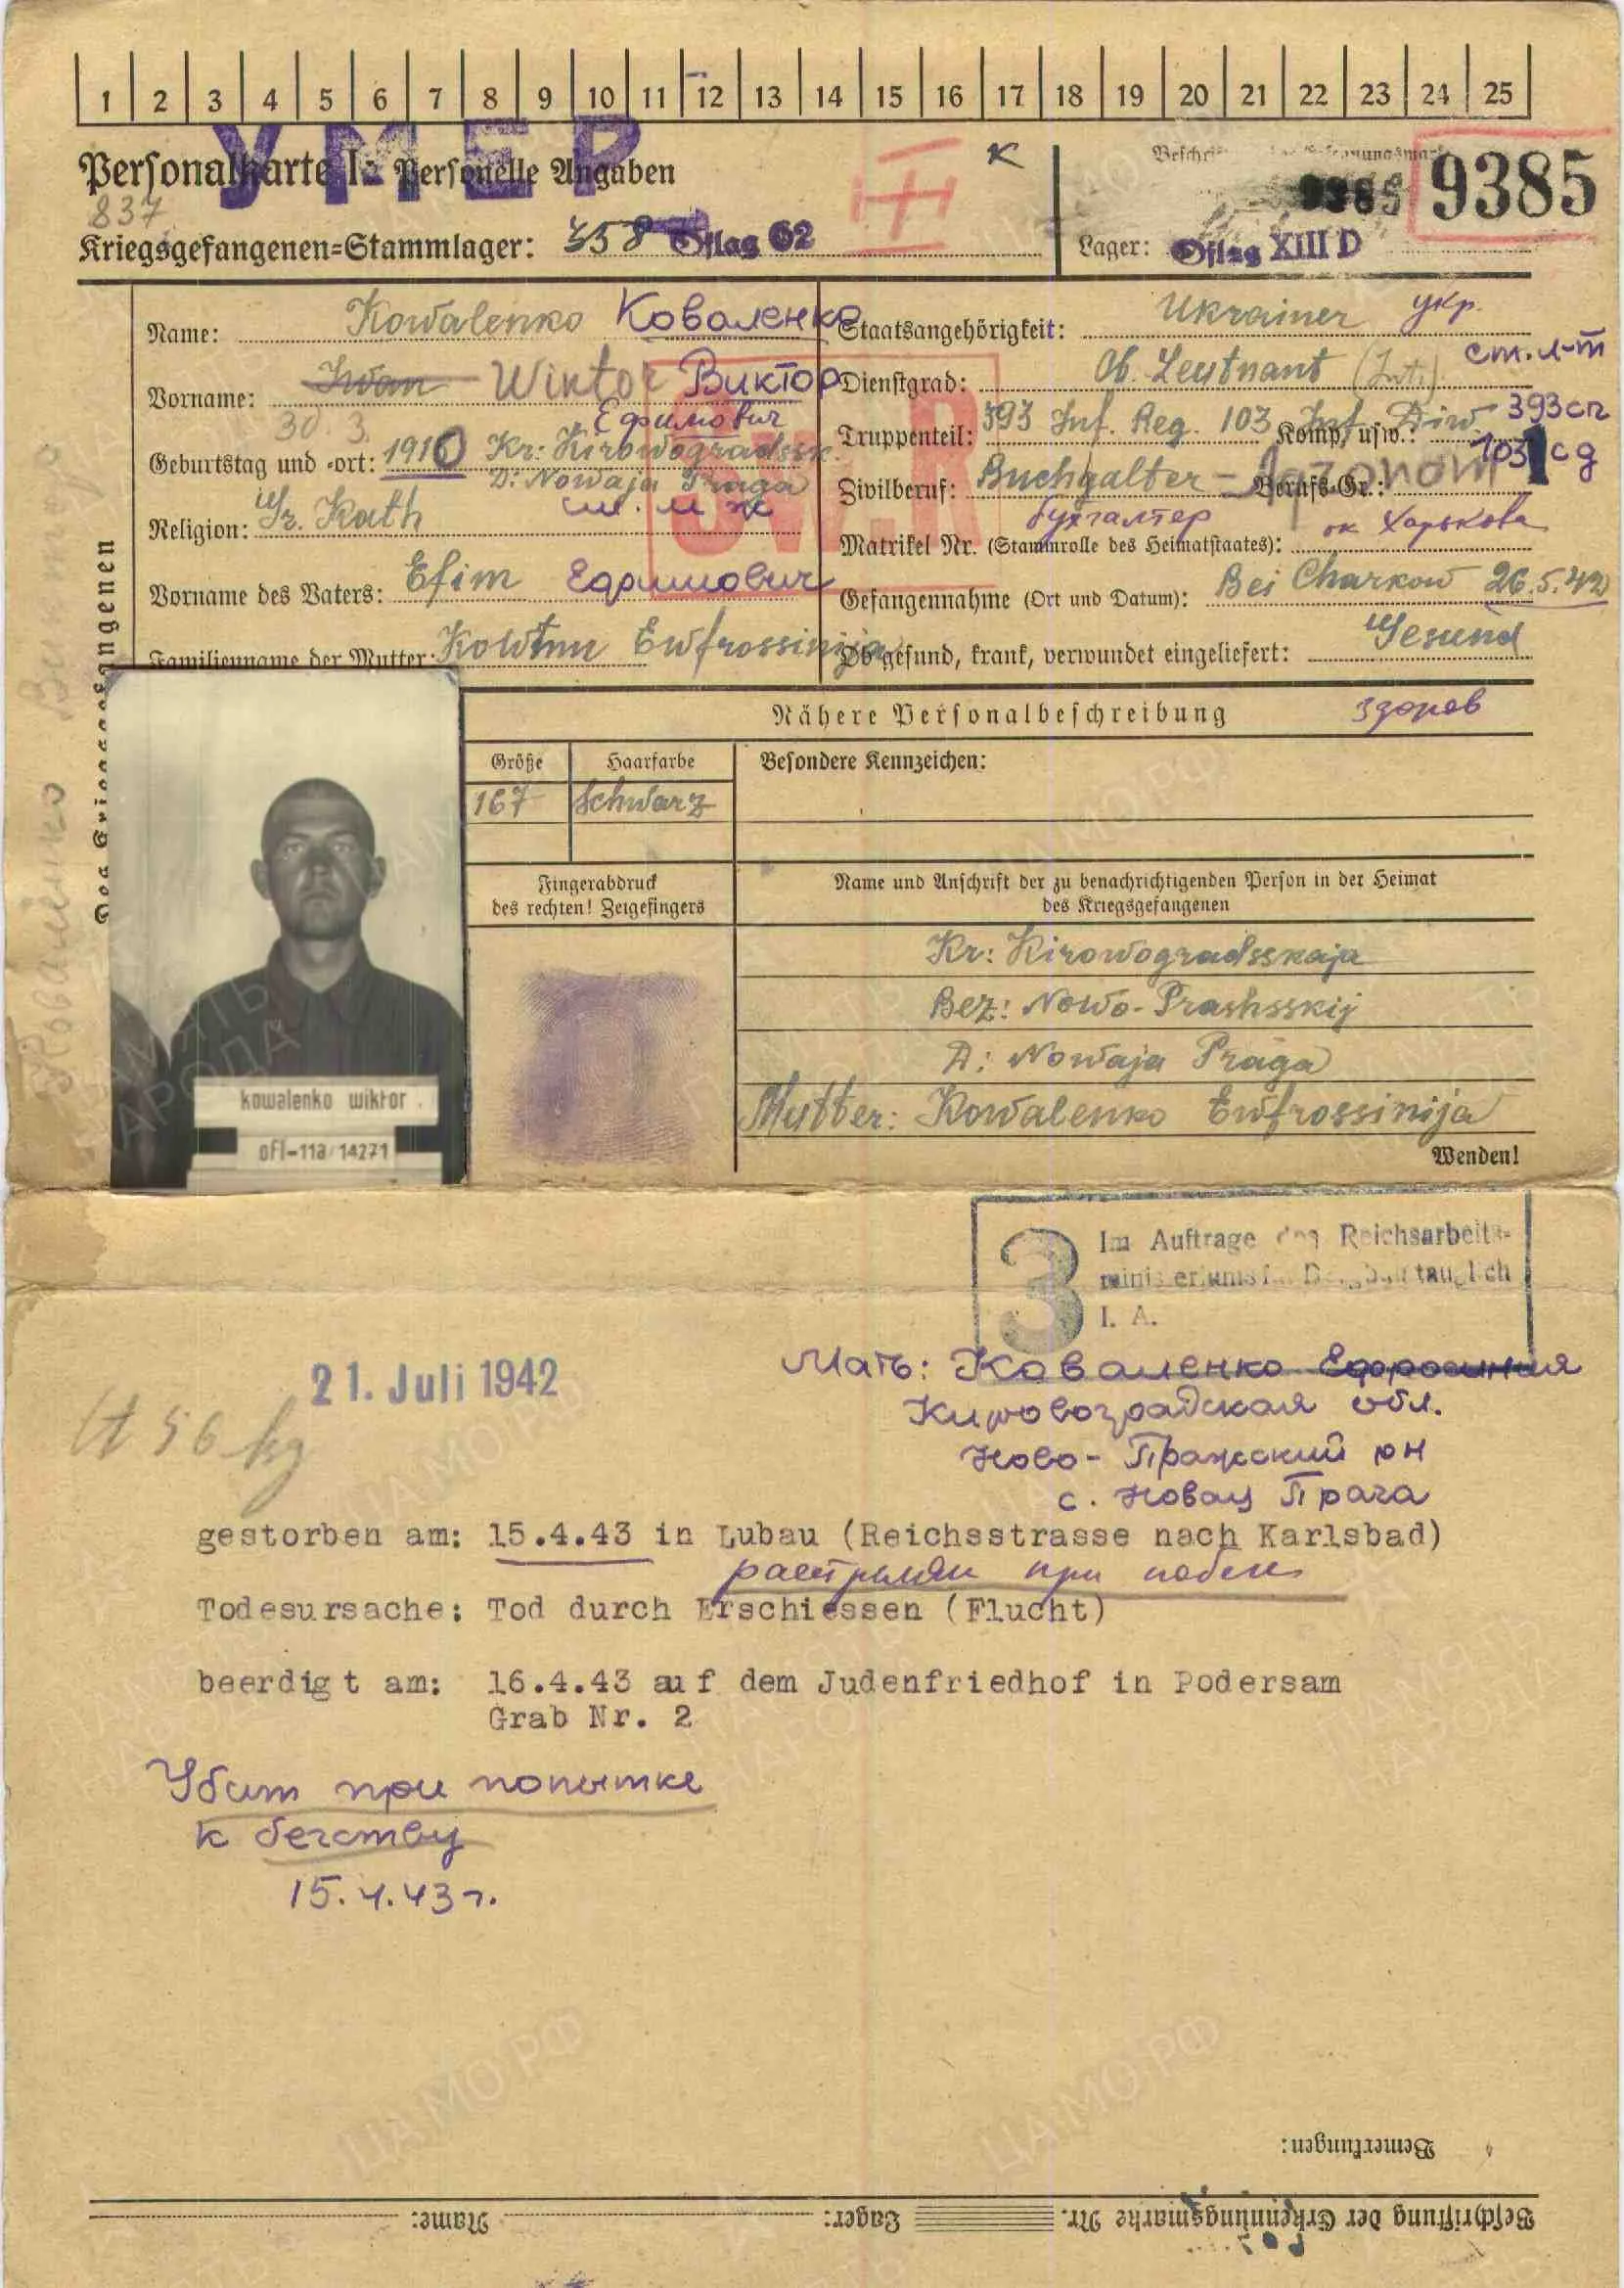 1 2 3 4 5 6 7 8 9 10 11 12 13 14 15 16 17 18 19 20 21 22 23 24 25
УМЕР
Personalkarte I: Personelle Angaben
К
9385
9385
837
Kriegsgefangenen=Stammlager: 358 Oflag 62
Lager: Oflag XIII D
Name: Kowalenko Коваленко
Vorname: Iwan Wiktor Виктор
Ефимович
30.3.
Geburtstag und -ort: 1916 Kr: Kirowogradssk.
D: Nowaja Praga
Religion: Gr. Kath
Vorname des Vaters: Efim Ефимович
Familienname der Mutter: Ewfrossinija
Staatsangehörigkeit: Ukrainer укр.
Dienstgrad: Ob. Leutnant (Int.) ст. л-т
Truppenteil: 393 Inf. Reg. 103 Inf. Diw. Komp. usw.: 393 сп
103 сд
Zivilberuf: Buchgalter - Agronom Berufs-Gr.:
бухгалтер
ок Харькова
Matrikel Nr. (Stammrolle des Heimatstaates):
Gefangennahme (Ort und Datum): Bei Charkow 26.5.42
Ob gesund, krank, verwundet eingeliefert: Gesund
здоров
Des Kriegsgefangenen
Коваленко Виктор
Nähere Personalbeschreibung
Größe Haarfarbe Besondere Kennzeichen:
167 Schwarz
Fingerabdruck
des rechten! Zeigefingers
Name und Anschrift der zu benachrichtigenden Person in der Heimat
des Kriegsgefangenen
Kr: Kirowogradsskaja
Bez: Nowo-Prashsskij
D: Nowaja Praga
Mutter: Kowalenko Ewfrossinija
Wenden!
kowalenko wiktor.
ofl-11a/14271
3
Im Auftrage des Reichsarbeits-
ministeriums f. Bergbau tauglich
I. A.
21. Juli 1942
56 kg
Мать: Коваленко
Кировоградская обл.
Ново-Пражский рн
с. Новая Прага
gestorben am: 15.4.43 in Lubau (Reichsstrasse nach Karlsbad)
расстрелян при побеге
Todesursache: Tod durch Erschiessen (Flucht)
beerdigt am: 16.4.43 auf dem Judenfriedhof in Podersam
Grab Nr. 2
Убит при попытке
к бегству
15.4.43 г.
Bemerkungen:
Beschriftung der Erkennungsmarke Nr. Lager: Name:
ЦАМО.РФ
ПАМЯТЬ НАРОДА